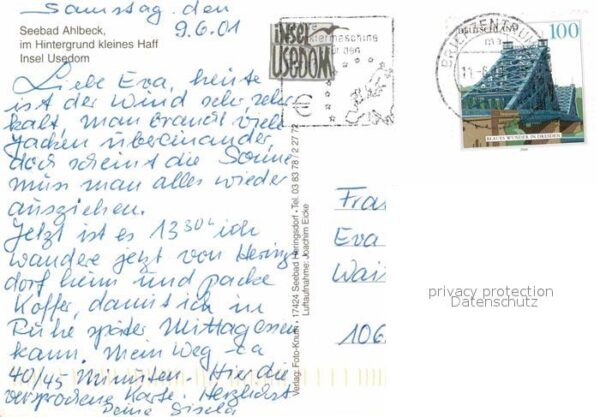 Samstag, den
9.6.01
Seebad Ahlbeck,
im Hintergrund kleines Haff
Insel Usedom
Liebe Eva, heute
ist der Wind sehr, sehr
kalt, man braucht viele
Jacken übereinander,
doch scheint die Sonne
muss man alles wieder
ausziehen.
Jetzt ist es 13 30 ich
wandere jetzt von Herings
dorf heim und packe
Koffer, damit ich in
Ruhe später Mittagessen
kann. Mein Weg - ca
40/45 Minuten. Hier die
versprochene Karte. Herzlichst
Deine Gisela
Verlag: Foto-Knuth · 17424 Seebad Heringsdorf · Tel. 03 83 78 / 2 27 72
Luftaufnahme: Joachim Eicke
INSEL
USEDOM
€
BRIEFZENTRUM
DEUTSCHLAND
100
BLAUES WUNDER IN DRESDEN
2000
Frau
Eva
106
privacy protection
Datenschutz